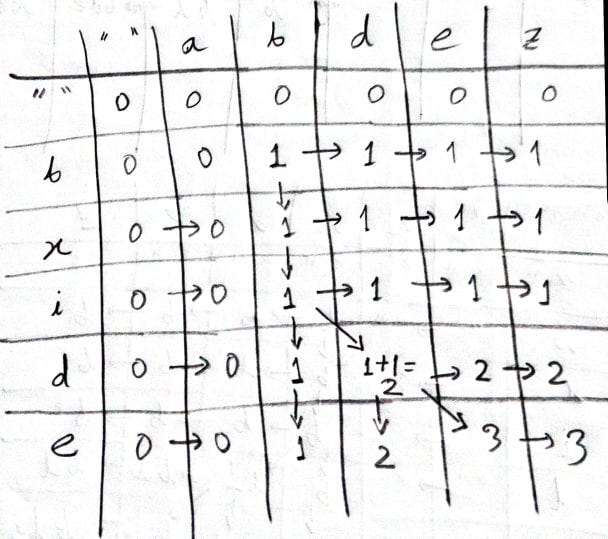 " " a b d e z
" " 0 0 0 0 0 0
b 0 0 1 → 1 → 1 → 1
↓
x 0 → 0 1 → 1 → 1 → 1
↓
i 0 → 0 1 → 1 → 1 → 1
↓ ↘
d 0 → 0 1 1+1=2 → 2 → 2
↓ ↓ ↘
e 0 → 0 1 2 3 → 3